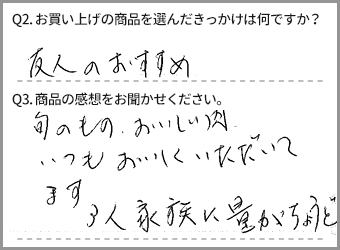 Q2. お買い上げの商品を選んだきっかけは何ですか？
友人のおすすめ
Q3. 商品の感想をお聞かせください。
旬のもの、おいしい肉、
いつもおいしくいただいて
ます
3人家族に量がちょうど